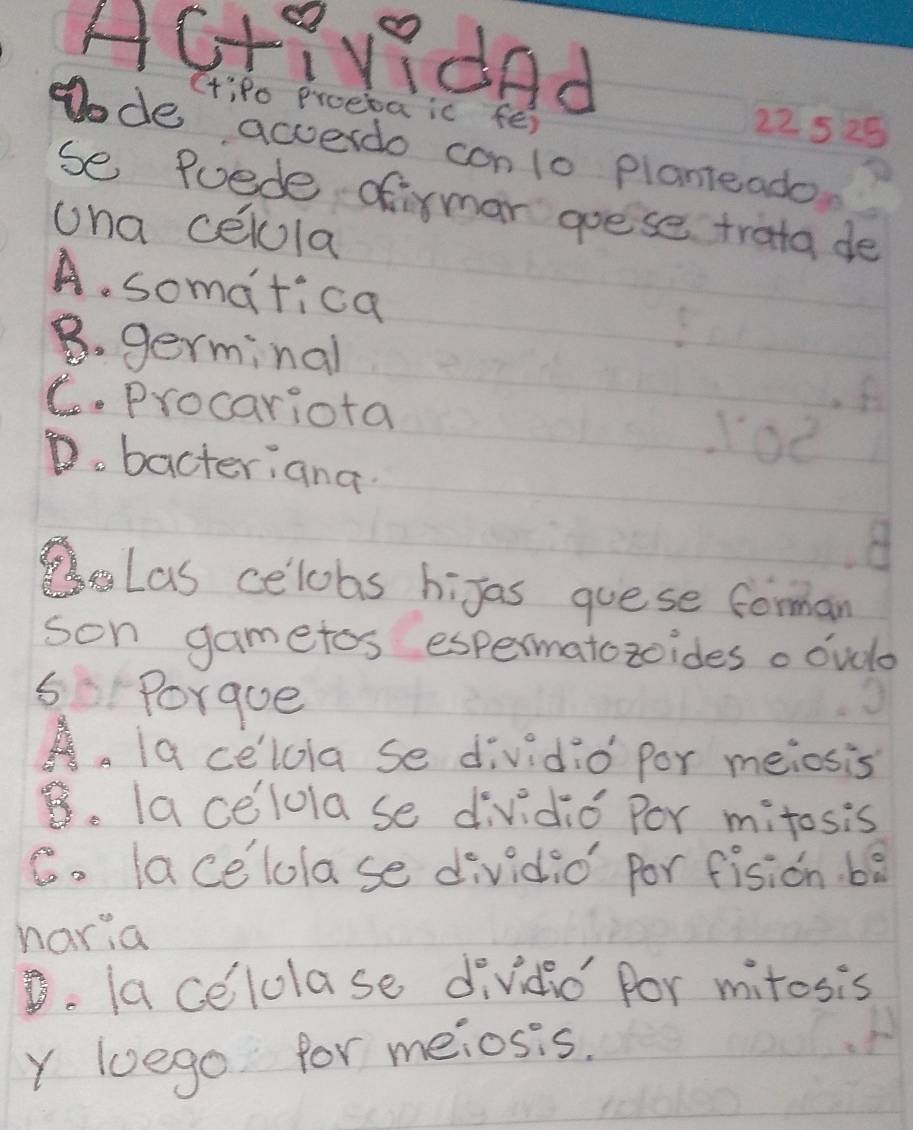 ACtividAd
(tipo proeba ic fe)
22 5 25
1. de acuerdo con lo planteado,
se puede afirmar que se trata de
una célula
A. somática
B. germinal
C. Procariota
D. bacteriana.
2. Las célubs hijas que se forman
son gametos (espermatozoides o óvulo
s porque
A. la célula se dividió por meiosis
B. la célula se dividió por mitosis
C. la célula se dividió por fisión bi
naria
D. la célula se dividió por mitosis
y luego por meiosis.